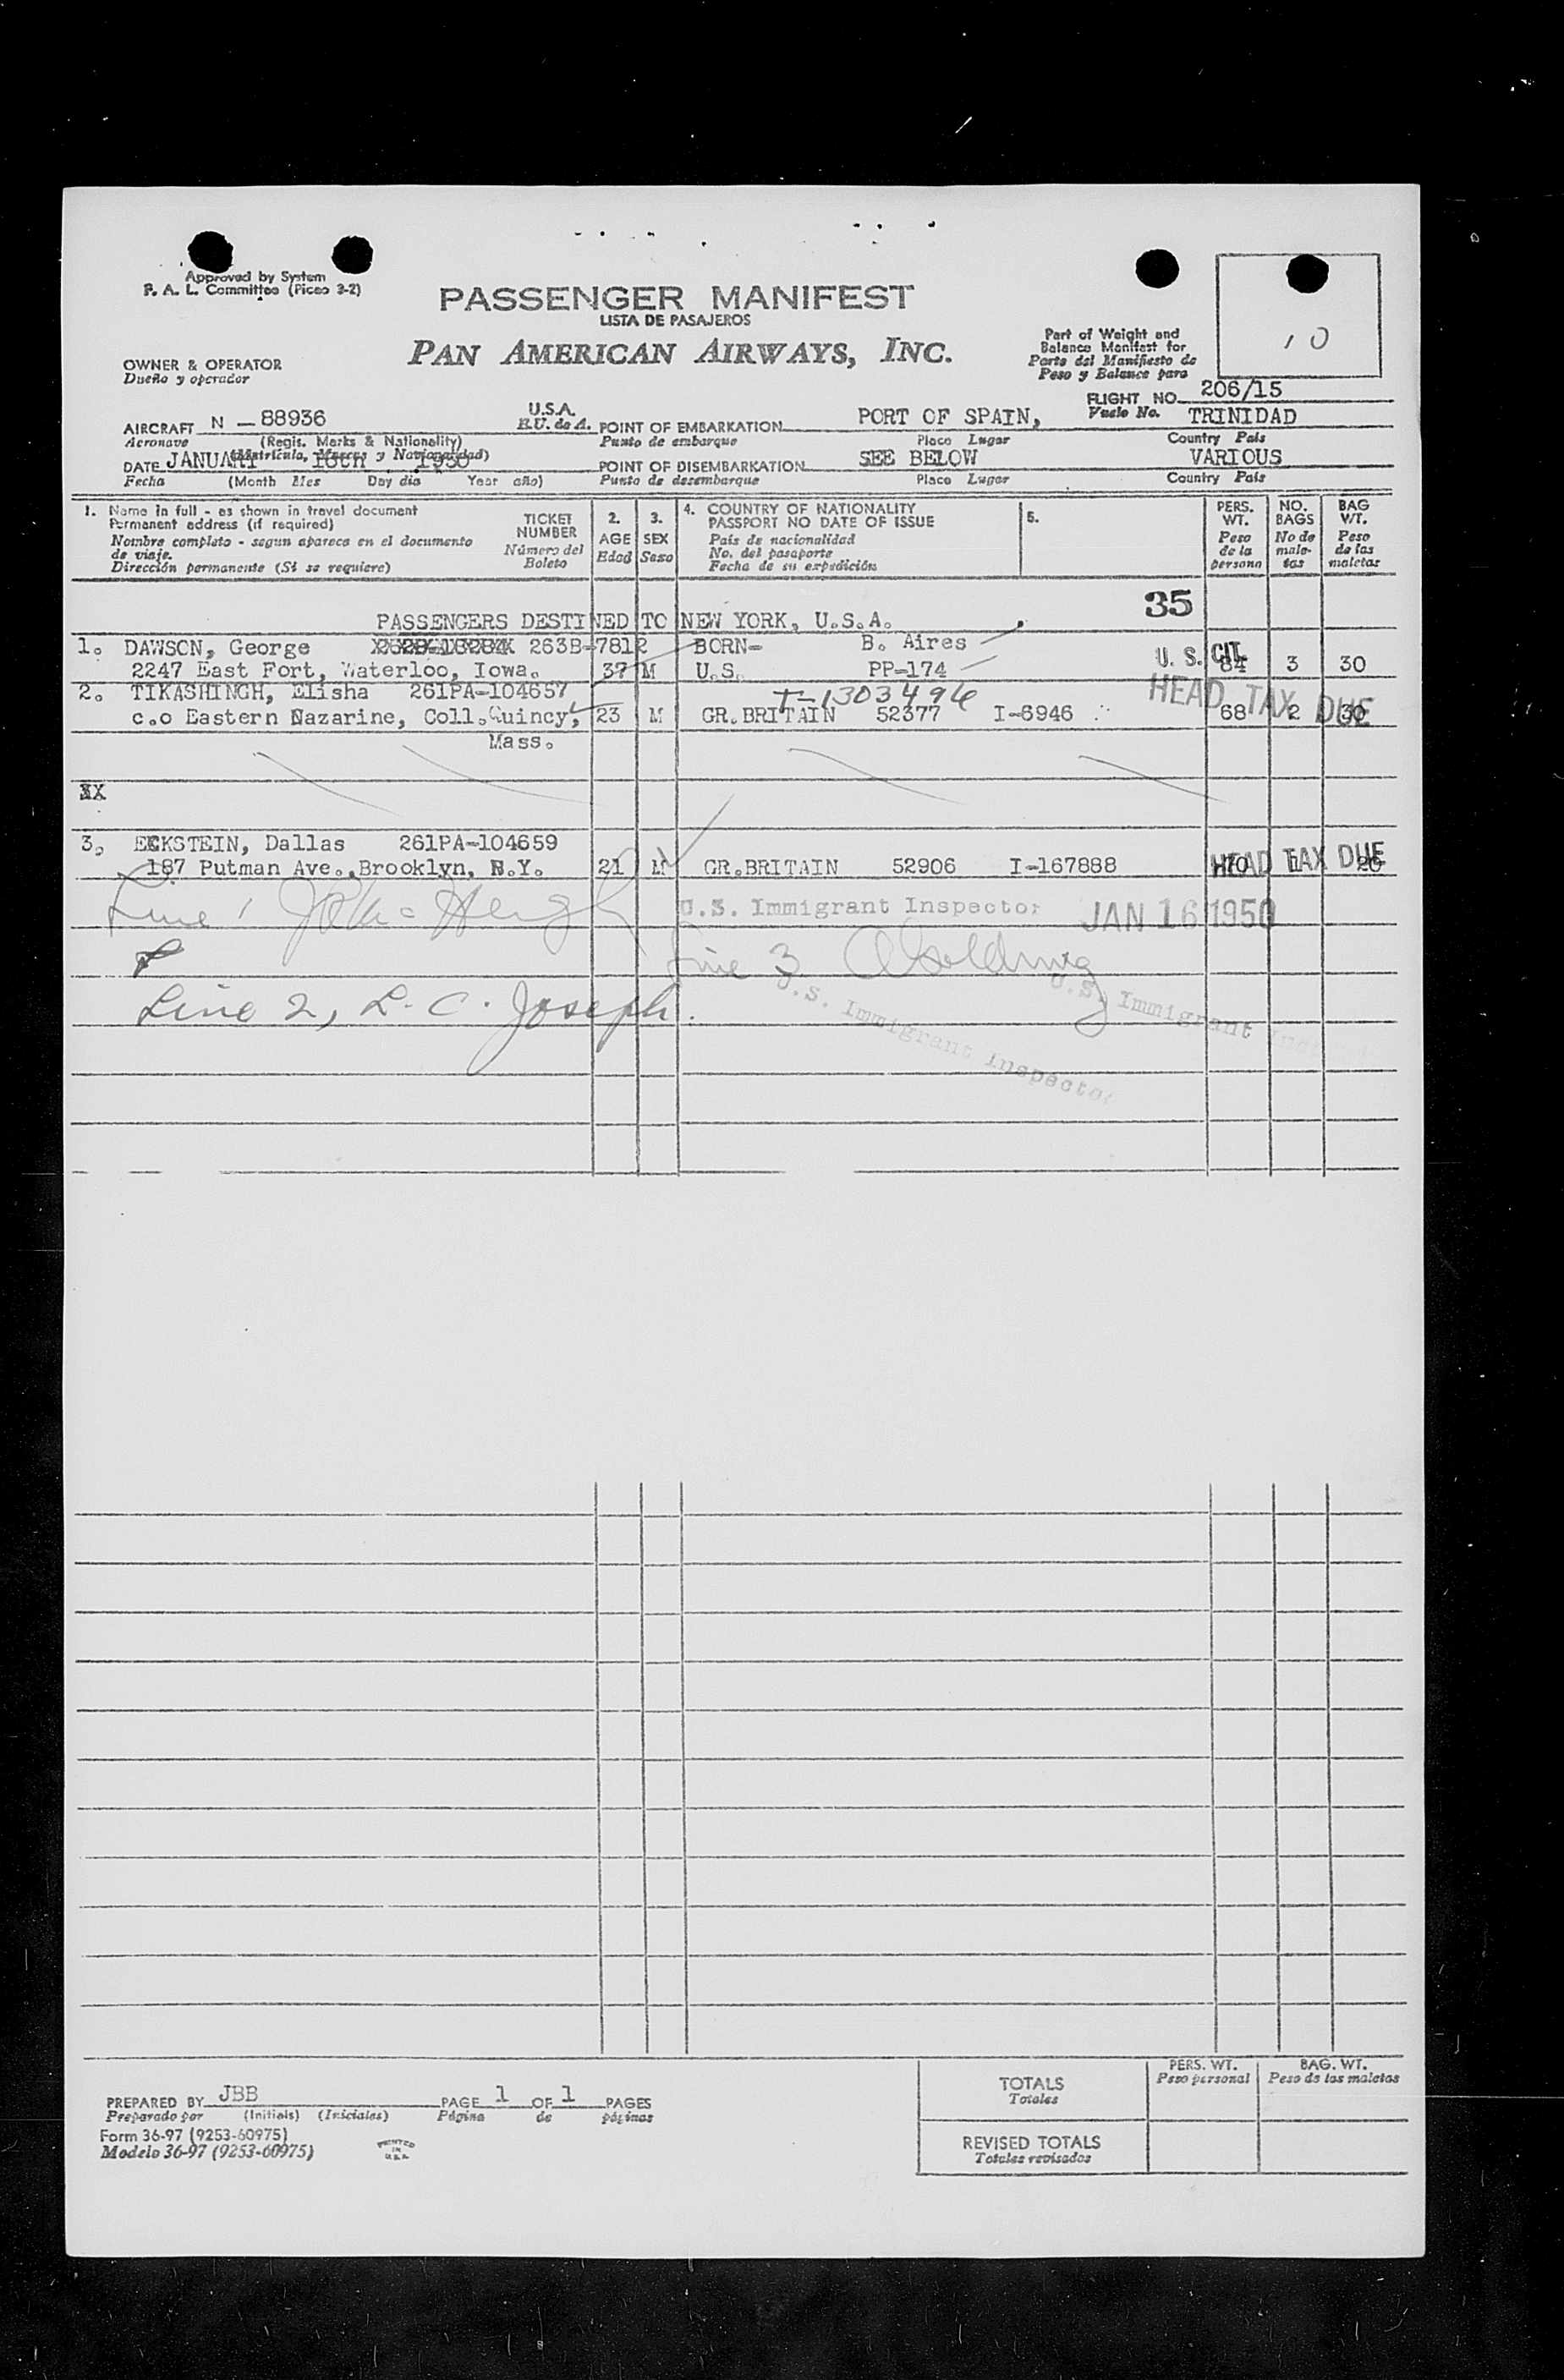 Approved by System
P. A. L. Committee (Piceo 3-2)
PASSENGER MANIFEST
LISTA DE PASAJEROS
PAN AMERICAN AIRWAYS, INC.
Part of Weight and
Balance Manifest for
Parte del Manifiesto de
Peso y Balance para
10
OWNER & OPERATOR
Dueño y operador
FLIGHT NO. 206/15
Vuelo No.
AIRCRAFT N - 88936 U.S.A.
Aeronave (Regis. Marks & Nationality) E.U. de A.
(Matrícula, Marcas y Nacionalidad)
POINT OF EMBARKATION PORT OF SPAIN, TRINIDAD
Punto de embarque Place Lugar Country País
DATE JANUARY 16th 1950
Fecha (Month Mes Day día Year año)
POINT OF DISEMBARKATION SEE BELOW VARIOUS
Punto de desembarque Place Lugar Country País
1. Name in full - as shown in travel document
Permanent address (if required)
Nombre completo - segun aparece en el documento
de viaje.
Dirección permanente (Si se requiere)
TICKET
NUMBER
Número del
Boleto
2.
AGE
Edad
3.
SEX
Sexo
4. COUNTRY OF NATIONALITY
PASSPORT NO DATE OF ISSUE
País de nacionalidad
No. del pasaporte
Fecha de su expedición
5.
PERS.
WT.
Peso
de la
persona
NO.
BAGS
No de
male-
tas
BAG
WT.
Peso
de las
maletas
35
PASSENGERS DESTINED TO NEW YORK, U.S.A.
1. DAWSON, George 263B-7812 BORN- B. Aires
2247 East Fort, Waterloo, Iowa. 37 M U.S. PP-174 U. S. CIT. 84 3 30
2. TIKASHINGH, Elisha 261PA-104657 T-1303496 HEAD TAX DUE
c.o Eastern Nazarine, Coll.Quincy, 23 M GR.BRITAIN 52377 I-6946 68 2 30
Mass.
XX
3. ECKSTEIN, Dallas 261PA-104659
187 Putman Ave.,Brooklyn, N.Y. 21 M GR.BRITAIN 52906 I-167888 70 1 26 HEAD TAX DUE
Line 1 U.S. Immigrant Inspector JAN 16 1950
&
Line 3
Line 2, L. C. Joseph.
U.S. Immigrant Inspector
U.S. Immigrant
PREPARED BY JBB PAGE 1 OF 1 PAGES
Preparado por (Initials) (Iniciales) Página de páginas
Form 36-97 (9253-60975)
Modelo 36-97 (9253-60975)
PRINTED
IN
U.S.A.
PERS. WT.
Peso personal
BAG. WT.
Peso de las maletas
TOTALS
Totales
REVISED TOTALS
Totales revisados